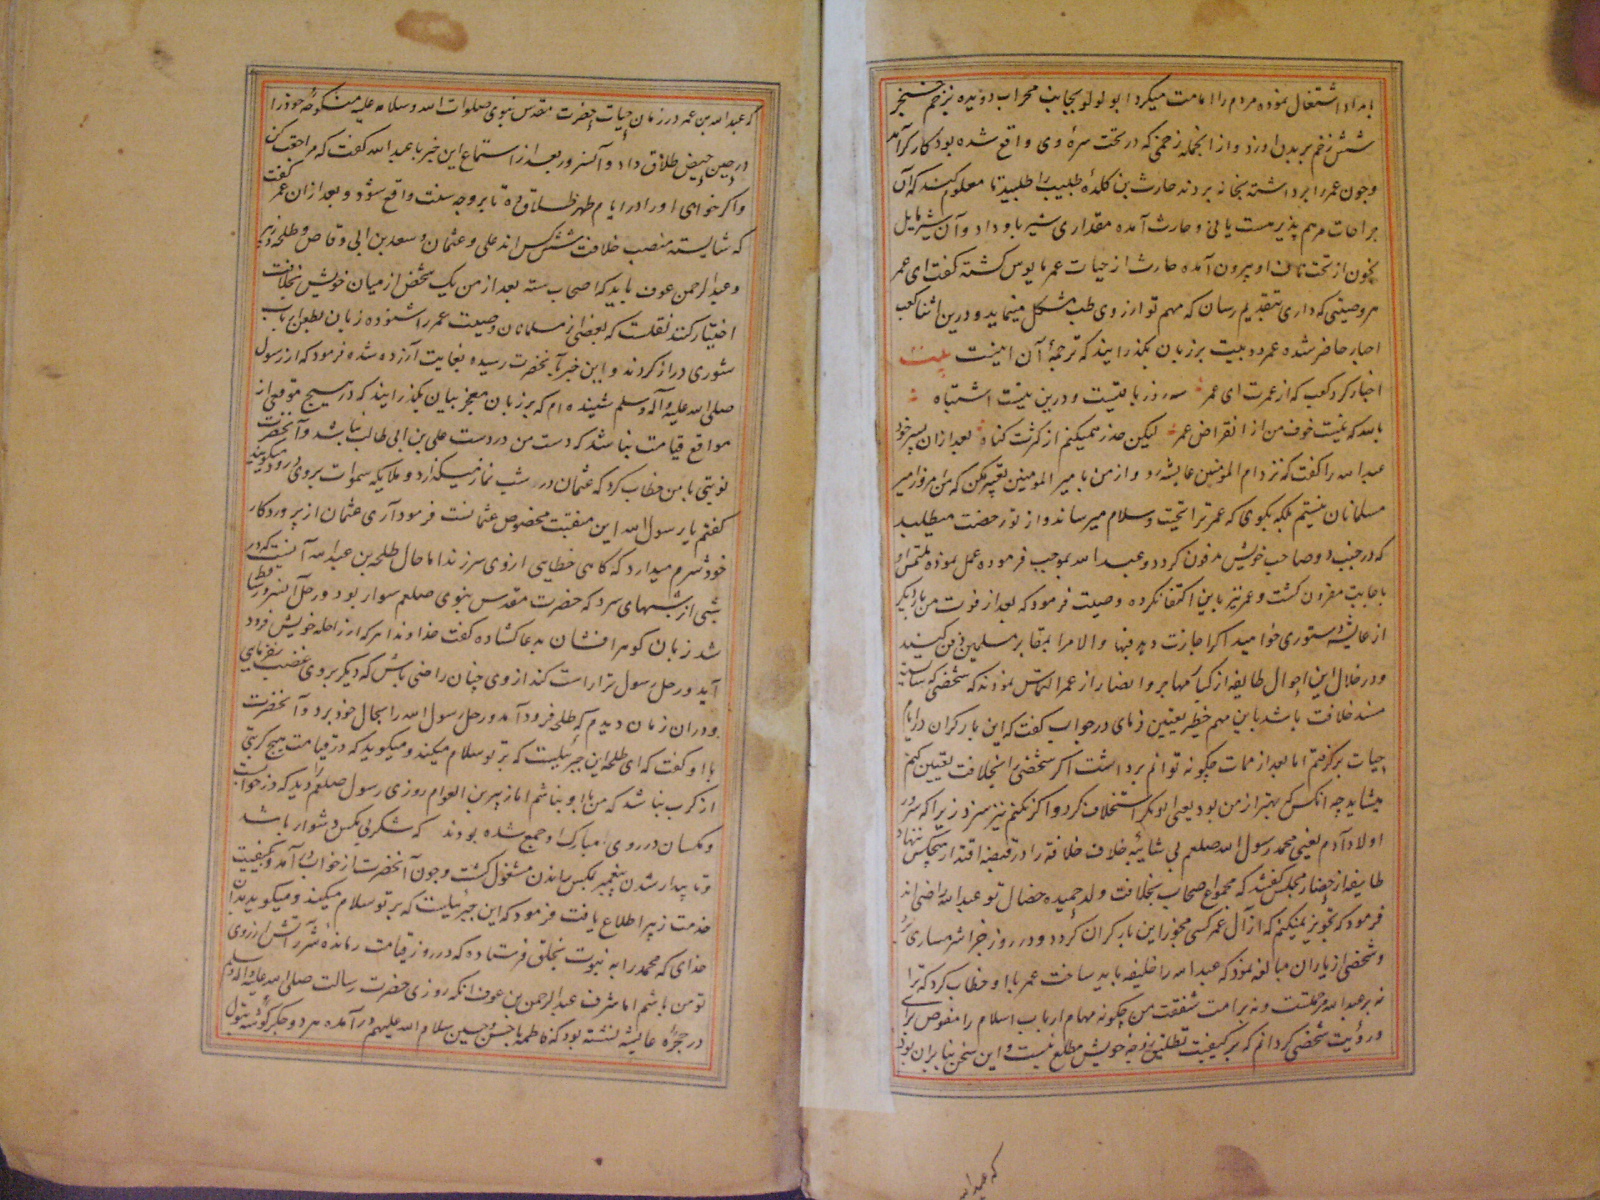 بامداد اشتغال نموده مردم را امامت میکرد ابو لولو بجانب محراب دویده بزخم خنجر
شش زخم بر بدن او زد و از انجمله زخمی که در تحت سرهٔ وی واقع شده بود کارکر آمد
و چون عمر را برداشته بخانه بردند حارث بن کلده طبیب را طلبیدند تا معلوم کند که آن
جراحات مرهم پذیر هست یا نی و حارث آمده مقداری شیر باو داد و آن شیر مایل
بخون از تحت ناف او بیرون آمده حارث از حیات عمر مایوس کشته کفت ای عمر
هر وصیتی که داری بتقدیم رسان که مهم تو از روی طب مشکل مینماید و درین اثنا کعب
احبار حاضر شده عمر دو بیت بر زبان بکذرانید که ترجمهٔ آن اینست بیت
اخبار کرد کعب که از عمرت ای عمر سه روز باقیست و درین نیست اشتباه
بالله که نیست خوف من از انقراض عمر لیکن حذر همیکنم از کثرت کناه بعد ازان پسر خود
عبدالله را کفت که نزد ام المومنین عایشه رو و از من بامیر المومنین تعبیر مکن که من امروز امیر
مسلمانان نیستم بلکه بکوی که عمر ترا تحیت و سلام میرساند و از تو رخصت میطلبد
که در جنب دو صاحب خویش مدفون کردد و عبدالله بموجب فرموده عمل نموده ملتمس او
باجابت مقرون کشت و عمر نیز باین اکتفا نکرده وصیت فرمود که بعد از فوت من بار دیکر
از عایشه دستوری خواهید اکر اجازت دهد فبها والا مرا بمقابر مسلمین دفن کنید
و در خلال این احوال طایفه از کبار مهاجر و انصار از عمر التماس نمودند که شخصی که شایسته
مسند خلافت باشد باین مهم خطیر تعیین فرمای در جواب کفت که این بار کران در ایام
حیات بر کرفتم اما بعد از ممات چکونه توانم برداشت اکر شخصی را بخلافت تعیین کنم
میشاید چه انکس که بهتر از من بود یعنی ابوبکر استخلاف کرد و اکر نکنم نیز سزد زیرا که سرور
اولاد آدم یعنی محمد رسول الله صلعم بی شایبه خلاف خلافة را در قبضه اقتدار هیچکس ننهاد
طایفه از حضار مجلس کفتند که مجموع اصحاب بخلافت ولد حمیده خصال تو عبدالله راضی اند
فرمود که تجویز نمیکنم که از آل عمر کسی مجوز این بار کران کردد و در روز جزا شرمساری برد
و شخصی از یاران مبالغه نمود که عبدالله را خلیفه باید ساخت عمر باو خطاب کرد که ترا
نه بر عبدالله مرحمتست و نه بر امت شفقت من چکونه مهام ارباب اسلام را مفوض برای
و رؤیت شخصی کردانم که بر کیفیت تطلیق زوجه خویش مطلع نیست و این سخن بنا بران بود
که عبدالله
که عبدالله بن عمر در زمان حیات حضرت مقدس نبوی صلوات الله و سلامه علیه منکوحهٔ خود را
در حین حیض طلاق داد و آنسرور بعد از استماع این خبر با عبدالله کفت که مراجعت کن
و اکر خواهی او را در ایام طهر طلاق ده تا بر وجه سنت واقع شود و بعد ازان عمر کفت
که شایسته منصب خلافت شش کس اند علی و عثمان و سعد بن ابی وقاص و طلحه و زبیر
و عبدالرحمن عوف باید که اصحاب سته بعد از من یک شخص از میان خویش بخلافت
اختیار کنند نقلست که بعضی از مسلمانان وصیت عمر را شنوده زبان بطعن ارباب
شوری دراز کردند و این خبر بآنحضرت رسیده بغایت آزرده شده فرمود که از رسول
صلی الله علیه وآله وسلم شنیده ام که بر زبان معجز بیان بکذرانید که در هیچ موقعی از
مواقع قیامت نباشد که دست من در دست علی بن ابی طالب نباشد و آنحضرت
نوبتی با من خطاب کرد که عثمان در شب نماز میکذارد و ملایکه سموات بروی درود میکویند
کفتم یا رسول الله این منقبت مخصوص عثمانست فرمود آری عثمان از پروردکار
خود شرم میدارد که کاهی خطایی از وی سر زند اما حال طلحه بن عبدالله آنست که در
شبی از شبهای سرد که حضرت مقدس نبوی صلعم سوار بود و رحل آنسرور
شد زبان کوهر افشان بدعا کشاده کفت خداوندا هر که از راحله خویش فرود
آید و رحل رسول ترا راست کند از وی چنان راضی باش که دیکر بروی غضب نفرمایی
و دران زمان دیدم که طلحه فرود آمد و رحل رسول الله را بحال خود برد و آنحضرت
با او کفت که ای طلحه این جبرئیلست که بر تو سلام میکند و میکوید که در قیامت هیچ کربتی
از کرب نباشد که من با تو نباشم اما زبیر بن العوام روزی رسول صلعم را دید که در خواب
و مکسان در روی مبارک او جمع شده بودند که شکر بی مکس دشوار باشد
و تا بیدار شدن پیغمبر بمکس راندن مشغول کشت و چون آنحضرت از خواب در آمد و بکیفیت
خدمت زبیر اطلاع یافت فرمود که این جبرئیلست که بر تو سلام میکند و میکوید بدان
خدای که محمد را به نبوت بخلق فرستاده که در روز قیامت رماننده شرر آتش از روی
تو من باشم اما شرف عبدالرحمن بن عوف انکه روزی حضرت رسالت صلی الله علیه وآله وسلم
در حجرهٔ عایشه نشسته بود که فاطمه با حسن و حسین سلام الله علیهم در آمده هر دو جکر کوشه بتول